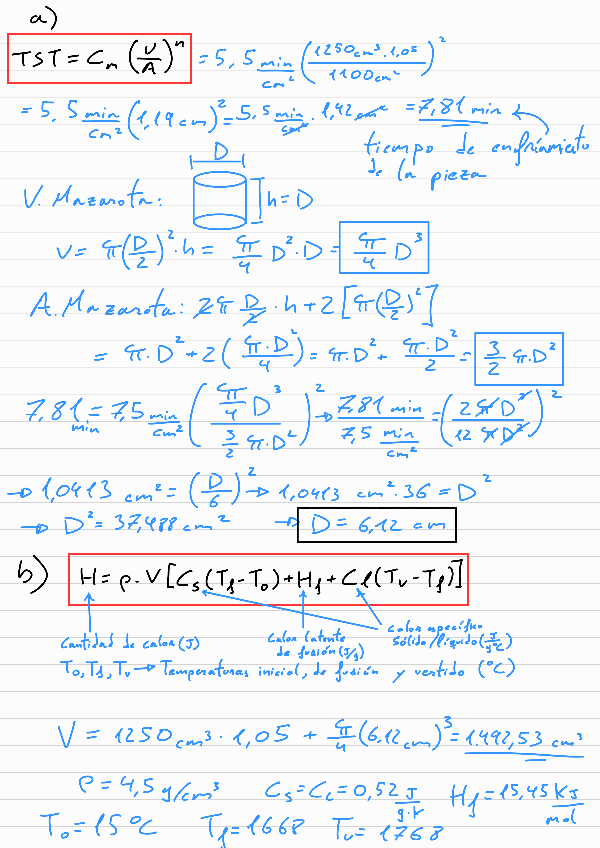 a)
TST = Cₙ (V/A)ⁿ = 5,5 min/cm² (1250cm³·1,05 / 1100cm²)²
= 5,5 min/cm² (1,19 cm)² = 5,5 min/cm² · 1,42 cm² = 7,81 min
tiempo de enfriamiento
de la pieza
D
V. Mazarota: h = D
V = π(D/2)²·h = π/4 D²·D = π/4 D³
A. Mazarota: 2π D/2 · h + 2[π(D/2)²]
= π·D² + 2(π·D²/4) = π·D² + π·D²/2 = 3/2 π·D²
7,81 min = 7,5 min/cm² (π/4 D³ / 3/2 π·D²)² → 7,81 min / 7,5 min/cm² = (2πD³ / 12πD²)²
→ 1,0413 cm² = (D/6)² → 1,0413 cm²·36 = D²
→ D² = 37,488 cm² → D = 6,12 cm
b) H = ρ·V[Cs(Tf-To)+Hf+Cl(Tv-Tf)]
Cantidad de calor (J) Calor latente de fusión (J/g) Calor específico sólido/líquido (J/g°C)
To, Tf, Tv → Temperaturas inicial, de fusión y vertido (°C)
V = 1250 cm³ · 1,05 + π/4 (6,12 cm)³ = 1.492,53 cm³
ρ = 4,5 g/cm³ Cs = CL = 0,52 J/g·K Hf = 15,45 KJ/mol
To = 15°C Tf = 1668 Tv = 1768